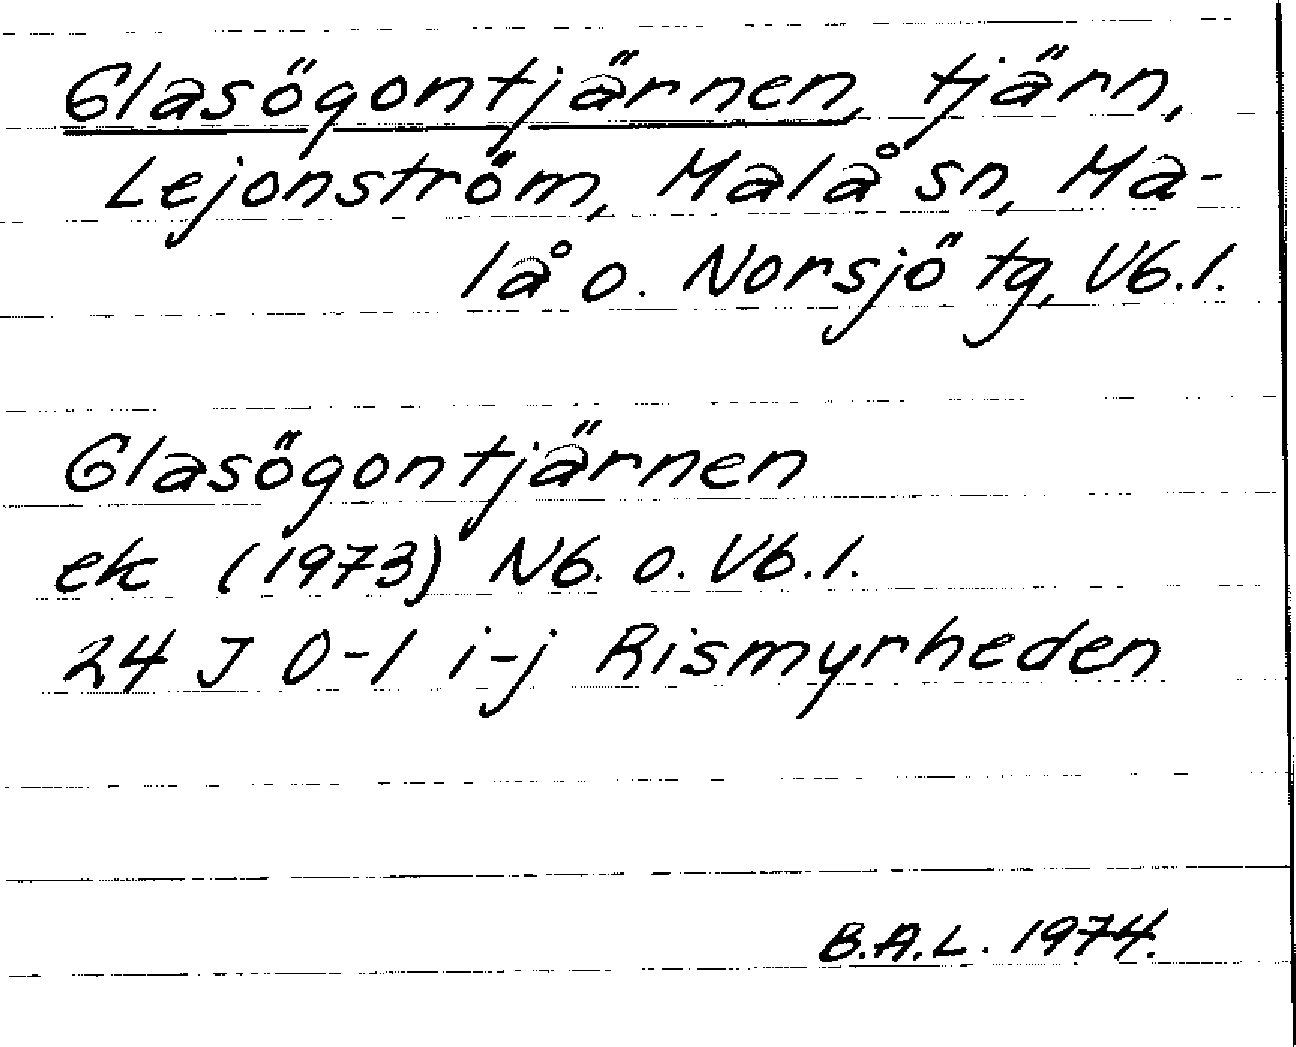 Glasögontjärnen, tjärn,
Lejonström, Malå sn, Ma-
lå o. Norsjö tg, Vb.l.
Glasögontjärnen
ek (1973) Nb. o. Vb.l.
24 J 0-1 i-j Rismyrheden
B.A.L. 1974.